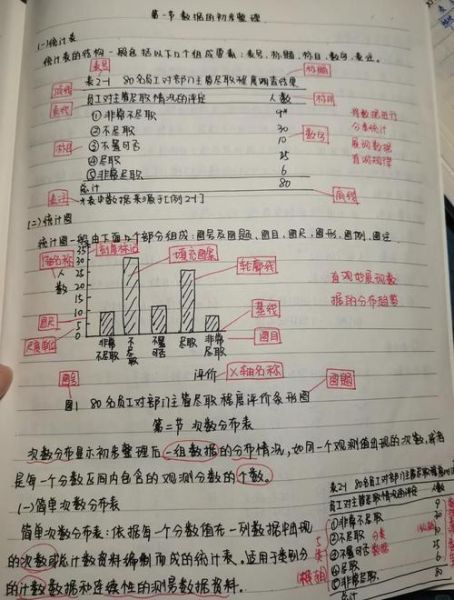 第一节 数据的初步整理
(一)统计表
统计表的结构一般包括以下几个组成要素：表号、标题、标目、数字、表注。
表号
标题
顶线
表2-1 80名员工对部门主管尽职程度调查结果
员工对主管尽职情况的评定 人数
标目
①非常不尽职 9
②不尽职 30
③不置可否 10
④尽职 25
⑤非常尽职 6
总计 80
数字
将数据进行
分类统计
展现数据
直观规律
表注
*表中数据来源于[例2-1]
底线
(二)统计图
统计图一般由下面几个部分组成：图号及图题、图目、图尺、图形、图例、图注
轴名称
人数
35
30
25
20
15
10
5
0
填充图案
轮廓线
直观地展现数
据的分布趋势
图尺
基线
尺度单位
图目
非常不尽职
不尽职
不置可否
尽职
非常尽职
评价
X轴名称
图号
图题
图1 80名员工对部门主管尽职程度评价条形图
第二节 次数分布表
次数分布显示初步整理后一组数据的分布情况，如同一个观测值出现的次数，或者
是每一个分数区间内包含的观测分数的个数。
(一)简单次数分布表
简单次数分布表：依据每一个分数值在一列数据中出现
的次数或总计数资料编制而成的统计表。适用于类别分
的计数数据和连续性的测量数据资料。
表2-1 80名员工对部门主管尽职程度
员工对主管尽职情况的评定 人数
①非常不尽职 9
②不尽职 30
③不置可否 10
④尽职 25
⑤非常尽职 6
总计 80
分类
数据